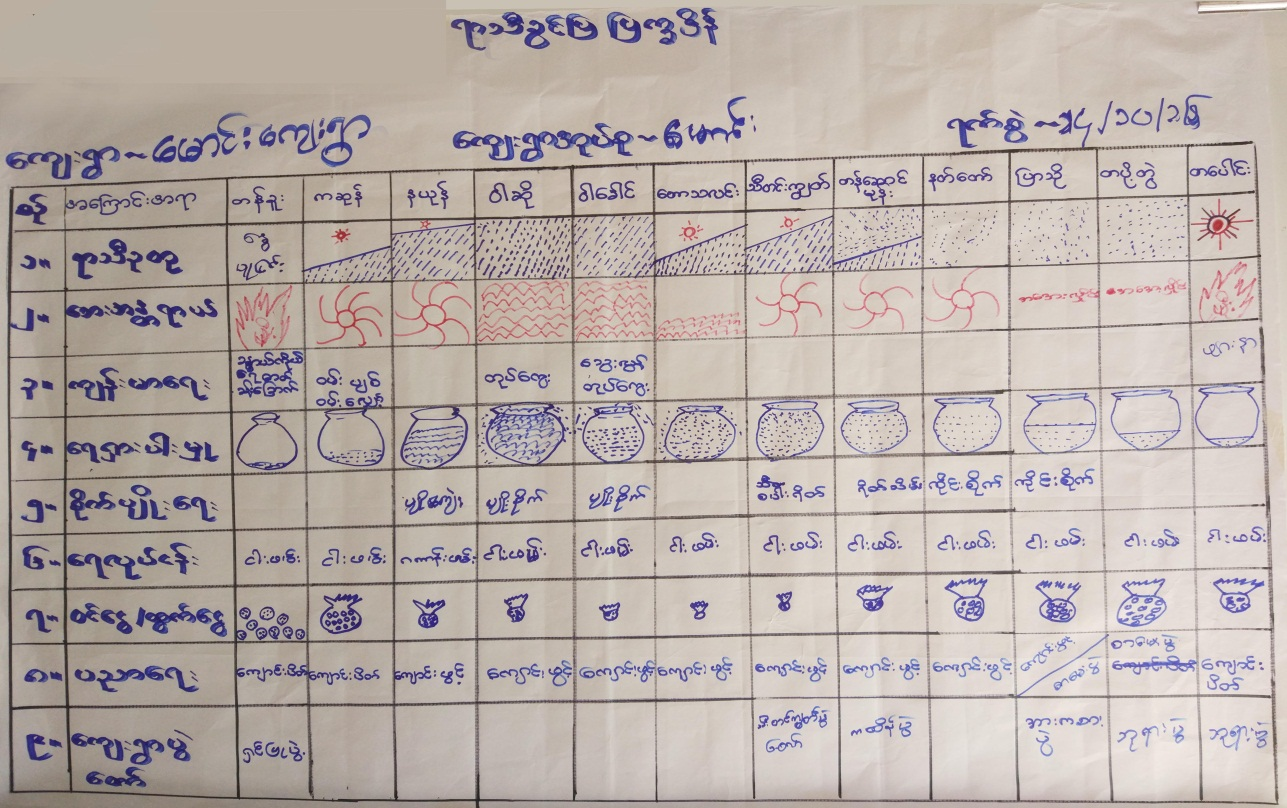 ရာသီခွင်ပြ ပြက္ခဒိန်
ကျေးရွာ - မောင်းကျေးရွာ ကျေးရွာအုပ်စု - မောင်း ရက်စွဲ -
စဉ် အကြောင်းအရာ တန်ခူး ကဆုန် နယုန် ဝါဆို ဝါခေါင် တော်သလင်း သီတင်းကျွတ် တန်ဆောင်မုန်း နတ်တော် ပြာသို တပို့တွဲ တပေါင်း
၁။ ရာသီဥတု
၂။ ဘေးအန္တရာယ်
၃။ ကျန်းမာရေး ဝမ်းပျစ် ဝမ်းလျှော တုပ်ကွေး သွေးလွန် တုပ်ကွေး ဖျားနာ
၄။ ရေရှားပါးမှု
၅။ စိုက်ပျိုးရေး ပျိုးကြဲ ပျိုးစိုက် ပျိုးစိုက် စပါးရိတ် ရိတ်သိမ်း ကိုင်းစိုက် ကိုင်းစိုက်
၆။ ရေလုပ်ငန်း ငါးဖမ်း ငါးဖမ်း ဂဏန်းဖမ်း ငါးဖမ်း ငါးဖမ်း ငါးဖမ်း ငါးဖမ်း ငါးဖမ်း ငါးဖမ်း ငါးဖမ်း ငါးဖမ်း ငါးဖမ်း
၇။ ဝင်ငွေ/ထွက်ငွေ
၈။ ပညာရေး ကျောင်းပိတ် ကျောင်းပိတ် ကျောင်းဖွင့် ကျောင်းဖွင့် ကျောင်းဖွင့် ကျောင်းဖွင့် ကျောင်းဖွင့် ကျောင်းဖွင့် ကျောင်းဖွင့် ကျောင်းဖွင့် စာမေးပွဲ စာမေးပွဲ ကျောင်းပိတ်
၉။ ကျေးရွာပွဲတော် ရှင်ပြုပွဲ သီတင်းကျွတ်ပွဲတော် ကထိန်ပွဲ အားကစားပွဲ ဘုရားပွဲ ဘုရားပွဲ